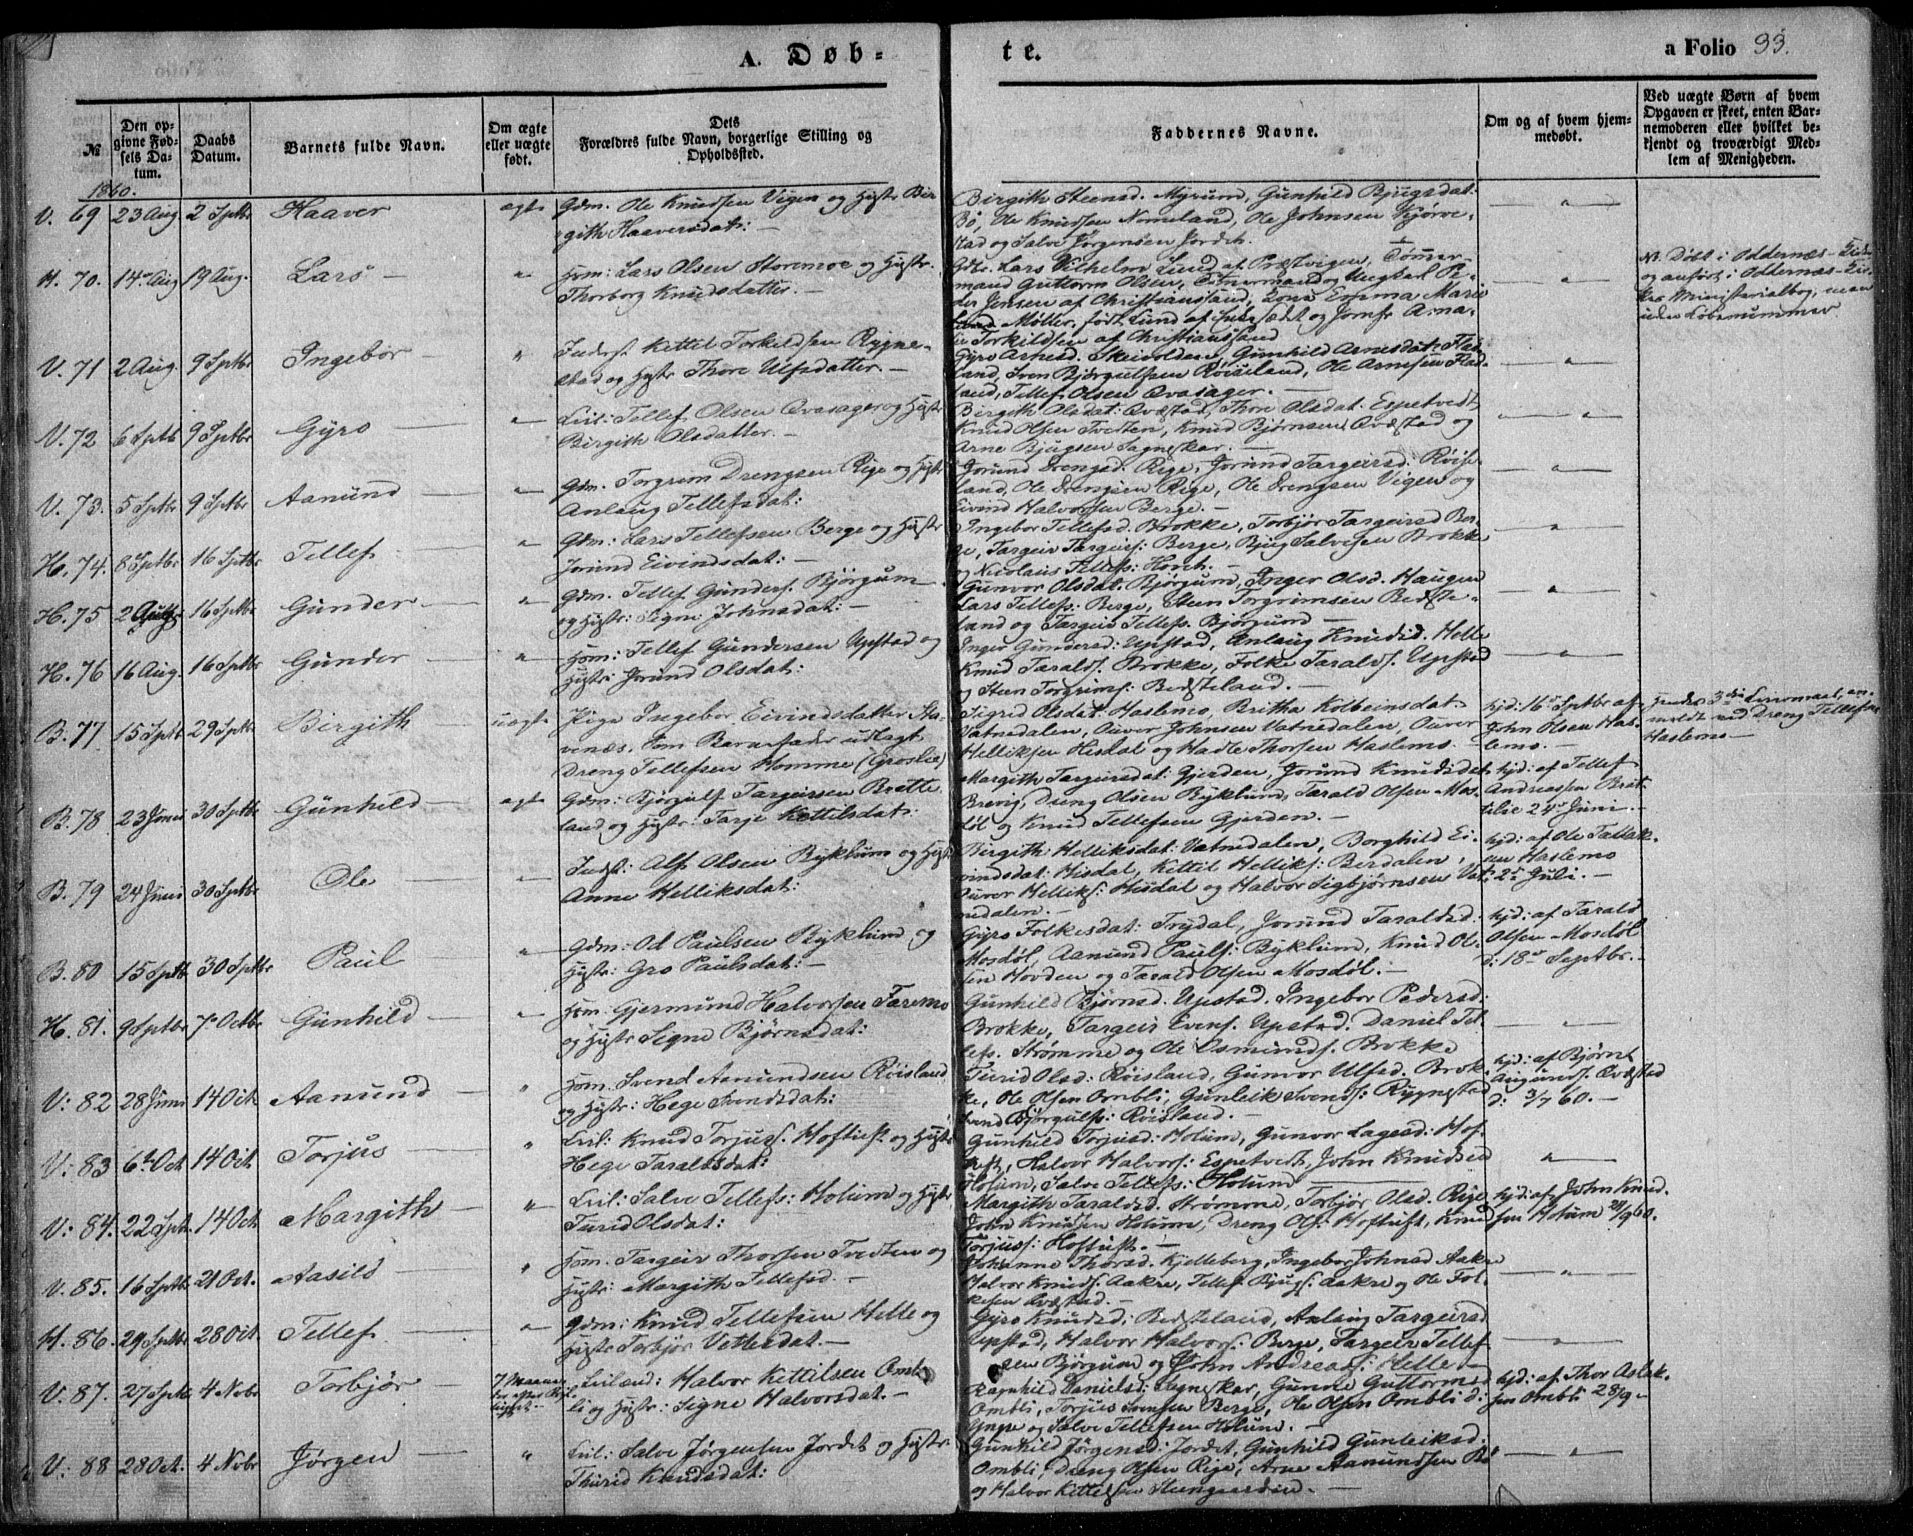 A. Døb-
te.
a Folio 33.
№
Den op-
givne Fød-
sels Da-
tum.
Daabs
Datum.
Barnets fulde Navn.
Om ægte
eller uægte
født.
Dets
Forældres fulde Navn, borgerlige Stilling og
Opholdssted.
Faddernes Navne.
Om og af hvem hjem-
medøbt.
Ved uægte Børn af hvem
Opgaven er skeet, enten Bar-
nemoderen eller hvilket be-
kjendt og troværdigt Med-
lem af Menigheden.
1860.
V. 69 23 Aug. 2 Sptbr Haaver ægte Gdm. Ole Knudsen Vigen og Hustr. Ber-
gith Haaversdat: —
Birgith Steensd. Myrum, Gunhild Bjugsdat:
Bö, Ole Knudsen Nomeland, Ole Johnsen Kjørve-
stad og Salve Jørgensen Jordet.
H. 70. 14de Aug 19 Aug. Lars — " Hsm: Lars Olsen Storemoe og Hustr.
Thorborg Knudsdatter. —
Gdbr. Lars Vilhelm Lund af Præstvigen, Tömmer-
mand Guttorm Olsen, Tömmermand og Ungkarl Pe-
der Jensen af Christianssand, Kone Emma Marie
Møller, født Lund af og Jomfr Ama-
lie Torkildsen af Christianssand
N. Döbt i Oddernæs-Kirke
og anført i Oddernæs-Kir-
kes Ministerialbog, men
uden Löbenummer
V. 71 2 Aug. 9 Sptbr Ingebor — " Inderst Kettil Torkildsen Rygne-
stad og Hustr Thore Ulfsdatter. —
Gyro Arnesd. Skeivoldsen, Gunhild Arnesdat: Flad-
land, Sven Bjørgulfsen Röiseland, Ole Arnesen Flad-
land, Tellef Olsen Qvasager. —
V. 72 6 Sptb 9 Sptbr Gyro — " Leil: Tellef Olsen Qvasager og Hustr
Birgith Olsdatter. —
Birgith Olsdat: Qvæstad, Thore Olsdat: Espetvedt,
Knud Olsen Tveten, Knud Björnsen Qvæstad og
Arne Bjugsen Sagneskar. —
V. 73. 5 Sptbr 9 Sptbr Aanund — " Gdm. Torgrim Drengsen Rige og Hustr
Anlaug Tellefsdat:
Jorund Drengsd. Rige, Jorund Targeirsd: Röise-
land, Ole Drengsen Rige, Ole Drengsen Vigen og
Eivind Halvorsen Berge. —
H. 74. 8 Sptbr 16 Sptbr Tellef — " Gdm: Lars Tellefsen Berge og Hustr
Jorund Eivindsdat: —
Ingebor Tellefsd. Brokke, Torbjør Targeirsd Ber-
ge, Targeir Targeirs: Berge, Bjug Salvesen Brokke
og Nicolaus Tellefs: Hovet. —
H. 75 2 16 Sptbr Gunder — " Gdm. Tellef Gunders. Bjørgum
og Hustr: Signe Johnsdat: —
Gunvor Olsdat: Bjørgum, Inger Olsd. Haugen
Lars Tellefs: Berge, Steen Torgrimsen Bedste-
land og Targeir Tellefs. Bjørgum —
H. 76 16 Aug. 16 Sptbr Gunder — " Hsm: Tellef Gundersen Upstad og
Hustr: Jorund Olsdat:
Inger Gundersd: Upstad, Anlaug Knudsd. Helle
Knud Taralds. Brokke, Folke Taralds. Upstad
og Steen Torgrims: Bedsteland. —
B. 77 15 Sptbr 29 Sptbr Birgith uægte Pige Ingebor Eivindsdatter Sta-
venæs. Som Barnefader udlagt
Dreng Tellefsen Homme (Groslie)
Sigrid Olsdat: Haslemo, Britha Kolbeinsdat:
Vatnedalen, Ouver Johnsen Vatnedalen, Ouver
Helliksen Hisdal og Hadle Thorsen Haslemo.
hjd: 16de Sptbr af
John Olsen Has-
lemo. —
Hendes 3die Leiermaal, an-
meldt ved Dreng Tellefsen
Haslemo —
B. 78 23 Juni 30 Sptbr Gunhild — ægte Gdm: Bjørgulf Targeirssen Bratte-
land og Hustr: Targe Kettilsdat:
Margith Targeirsdat: Gjerden, Jorund Knudsdat
Breivig, Dreng Olsen Byklum, Tarald Olsen Mos-
döl og Knud Tellefsen Gjerden. —
hjd: af Tellef
Andreassen Brat-
telie 24de Juni. —
B. 79 24 Juni 30 Sptbr Ole — Indst: Alf Olsen Byklum og Hustr
Anne Helliksdat:
Birgith Helliksdat: Vatnedalen, Borghild Ei-
vindsdat: Hisdal, Kettil Helliks: Berdalen,
Ouver Helliks: Hisdal og Halvor Sigbjørnsen Vat-
nedalen. —
hjd: af Ole Tallak-
sen Haslemo
2de Juli. —
B. 80 15 Sptb 30 Sptbr Paul " Gdm: Od Paulsen Byklum og
Hustr: Gro Paulsdat: —
Gyro Folkesdat: Trydal, Jorund Taraldsd:
Mosdöl, Aanund Pauls: Byklum, Knud Ol-
sen Hovden og Tarald Olsen Mosdöl. —
hjd: af Tarald
Olsen Mosdöl
d: 18de Septbr. —
H. 81. 9 Sptbr 7de Octbr Gunhild — " Hsm: Gjermund Halvorsen Faremo
og Hustr Signe Björnsdat:
Gunhild Björnsd. Upstad. Ingebor Pedersd:
Brokke, Targeir Evens. Upstad. Daniel Tel-
lefs. Strömme og Ole Osmunds. Brokke
V: 82 28 Juni 14 Oct. Aanund — " Hsm. Svend Aanundsen Röisland
og Hustr: Hege Svendsdat:
Turid Olsd: Röisland, Gunvor Ulfsd. Brok-
ke, Ole Olsen Ombli, Gunleik Svends: Rygnestad
Svend Bjørgulfs: Röisland. —
hjd: af Bjørn
Augunds. Qvæstad
d: 3/7 60. —
V: 83 6te Oct 14 Oct Torjus — " Leil: Knud Torjuss. Hoftuft. og Hustr
Hege Taraldsdat:
Gunhild Torjusd: Holum, Gunvor Lagesd: Hof-
tuft, Halvor Halvors: Espetvedt, John Knudsen
Holum, Salve Tellefs: Holum
V: 84. 22 Spt. 14 Oct. Margith — " Leil: Salve Tellefs: Holum og Hustr
Turid Olsdat:
Margith Taraldsd. Strömme, Torbjør Olsd. Rige
John Knudsen Holum, Dreng Ols: Hoftuft, Knud
Torjuss: Hoftuft. —
hjd: af John Knud-
sen Holum 24/9 60.
V: 85. 16 Sptbr 21 Oct. Aasild — " Hsm. Targeir Thorsen Tveten og
Hustr: Margith Tellefsd. —
Johanne Thorsd. Kjelleberg, Ingebor Johnsd Aakre
Halvor Knuds. Aakre, Tellef Bjugs: Aakre og Ole Fol-
kesen Qvæstad. —
H. 86. 29 Sptbr 28 Oct. Tellef — " Gdm: Knud Tellefsen Helle og
Hustr Torbjör Vettersdat. —
Gyro Knudsd: Bedsteland, Anlaug Targeirsd
Upstad, Halvor Halvors: Berge, Targeir Tellef-
sen Bjørgum og John Andreass: Helle —
V: 87. 27 Sptbr 4 Nobr Torbjør — 7 Maane-
der efter Bryl-
luppet. — Leilænd: Halvor Kettilsen Omb-
li og Hustr: Signe Halvorsdat. —
Ragnhild Danielsd: Sagneskar, Gunne Guttormsd
Ombli, Torjus Svensen Berge, Ole Olsen Ombli d:
Ynge og Salve Tellefsen Holum. —
hjd: af Thor Aslak-
sen Ombli 28/9 —
V: 88 28 Oct. 4 Nobr Jørgen — " Leil: Salve Jørgensen Jordet og Hustr.
Thurid Knudsdat:
Gunhild Jørgensd: Jordet, Gunhild Gunleiksd.
Ombli, Dreng Olsen Rige, Arne Aanundsen Bö
og Halvor Kettelsen Steengaarden. —